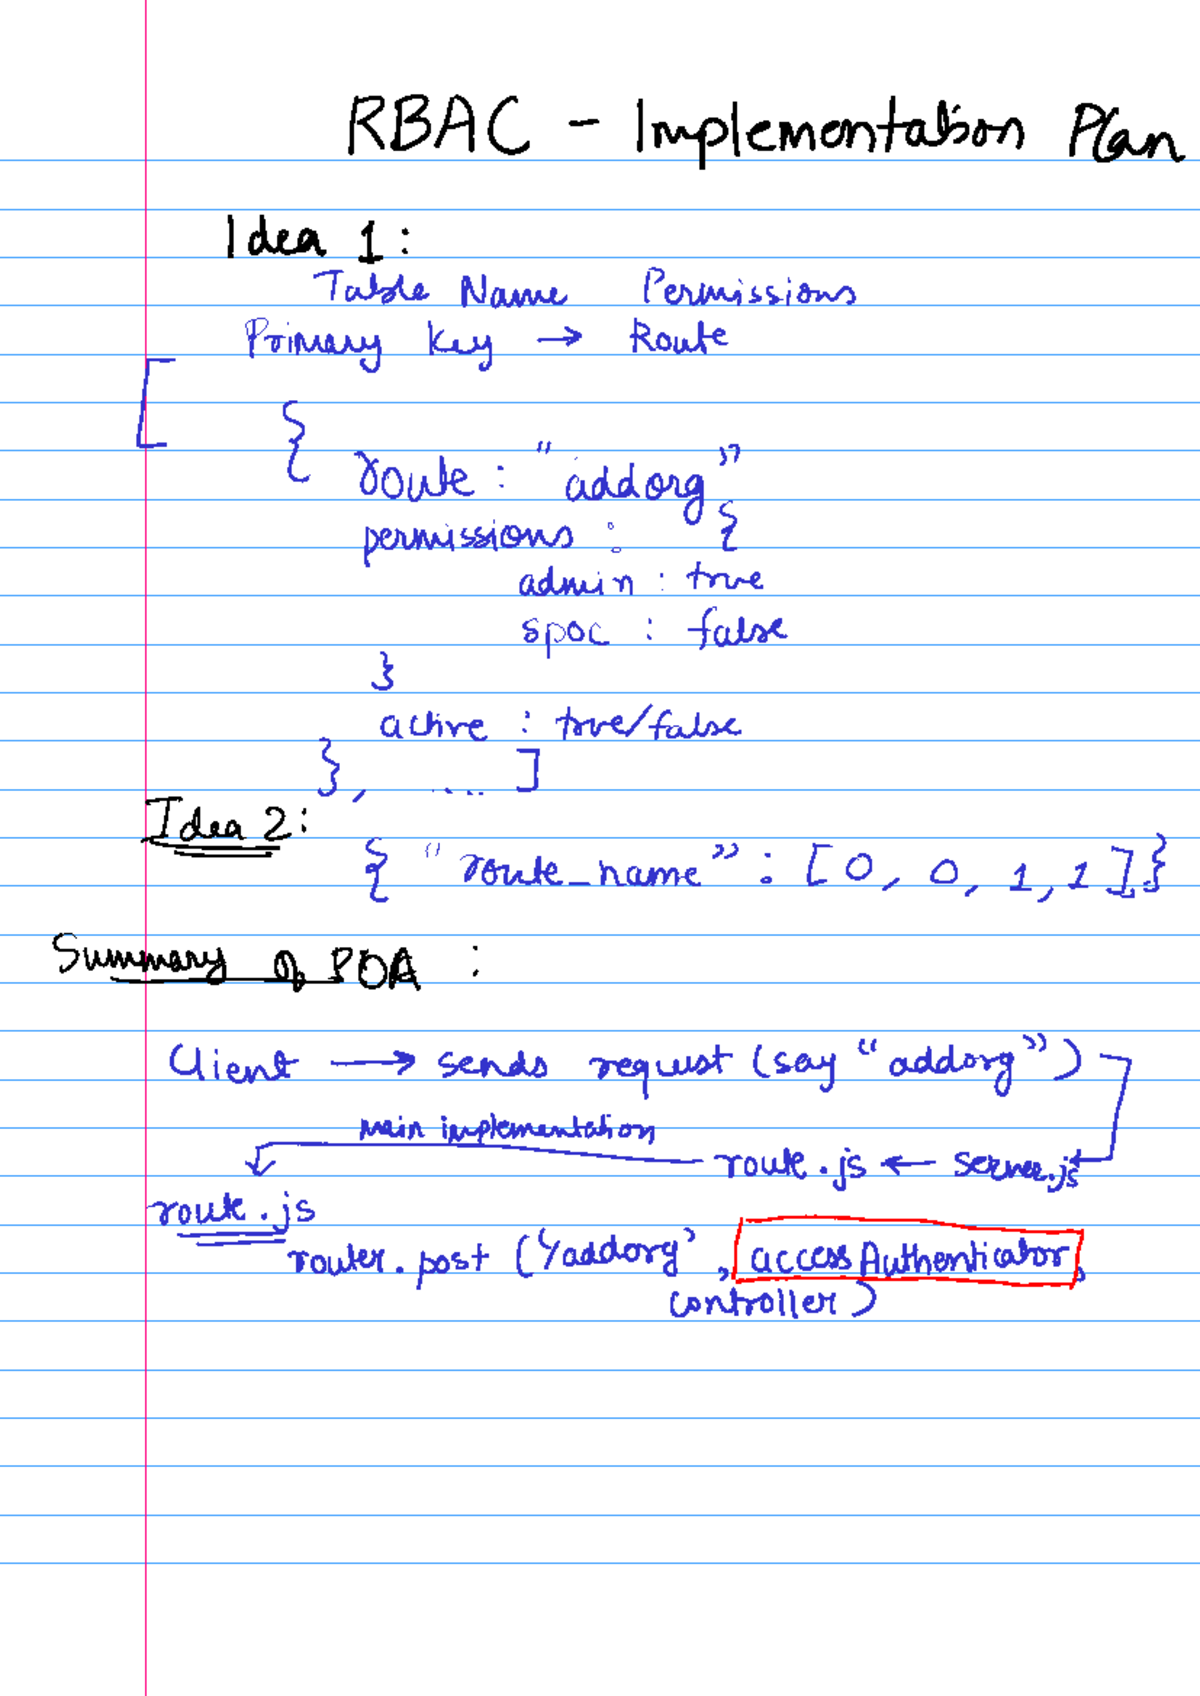 RBAC - Implementation Plan
Idea 1:
Table Name Permissions
Primary Key → Route
[
{
route : "addorg"
permissions : {
admin : true
spoc : false
}
active : true/false
}, .... ]
Idea 2:
{ "route_name" : [0, 0, 1, 1]}
Summary of POA :
Client → sends request (say "addorg")
main implementation
route.js ← server.js
route.js
router.post ('/addorg', accessAuthenticator,
controller)